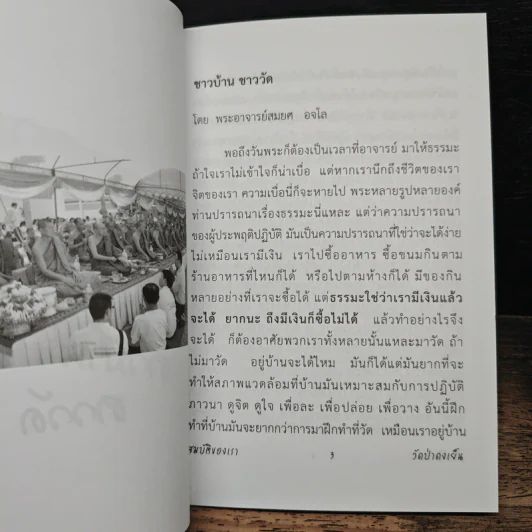 ชาวบ้าน ชาววัด
โดย พระอาจารย์สมยศ อจโล
พอถึงวันพระก็ต้องเป็นเวลาที่อาจารย์ มาให้ธรรมะ
ถ้าใจเราไม่เข้าใจก็น่าเบื่อ แต่หากเรานึกถึงชีวิตของเรา
จิตของเรา ความเบื่อนี่ก็จะหายไป พระหลายรูปหลายองค์
ท่านปรารถนาเรื่องธรรมะนี่แหละ แต่ว่าความปรารถนา
ของผู้ประพฤติปฏิบัติ มันเป็นความปรารถนาที่ใช่ว่าจะได้ง่าย
ไม่เหมือนเรามีเงิน เราไปซื้ออาหาร ซื้อขนมกินตาม
ร้านอาหารที่ไหนก็ได้ หรือไปตามห้างก็ได้ มีของกิน
หลายอย่างที่เราจะซื้อได้ แต่ธรรมะใช่ว่าเรามีเงินแล้ว
จะได้ ยากนะ ถึงมีเงินก็ซื้อไม่ได้ แล้วทำอย่างไรจึง
จะได้ ก็ต้องอาศัยพวกเราทั้งหลายนั้นแหละมาวัด ถ้า
ไม่มาวัด อยู่บ้านจะได้ไหม มันก็ได้แต่มันยากที่จะ
ทำให้สภาพแวดล้อมที่บ้านมันเหมาะสมกับการปฏิบัติ
ภาวนา ดูจิต ดูใจ เพื่อละ เพื่อปล่อย เพื่อวาง อันนี้ฝึก
ทำที่บ้านมันจะยากกว่าการมาฝึกทำที่วัด เหมือนเราอยู่บ้าน
สมบัติของเรา 3 วัดป่าดงเย็น